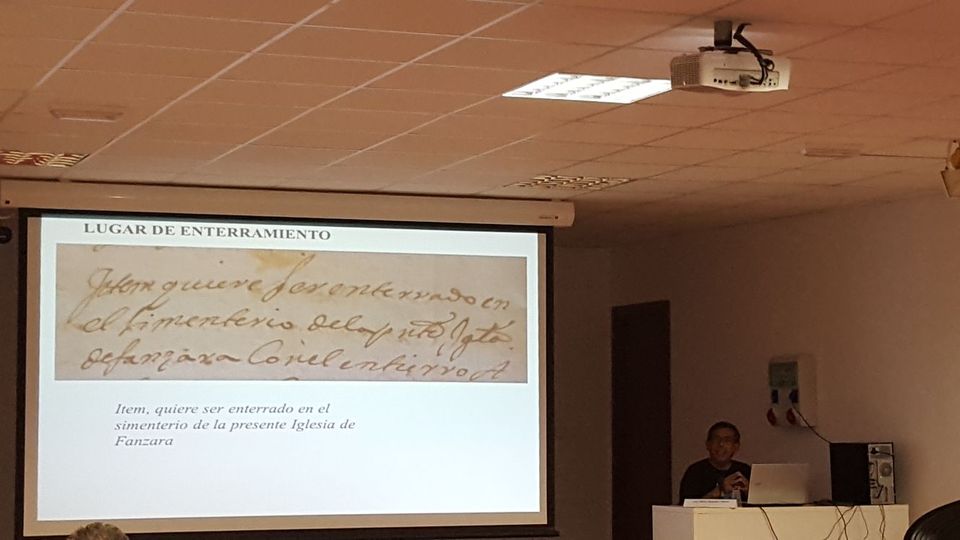 LUGAR DE ENTERRAMIENTO
Item quiere ser enterrado en
el simenterio dela pnte Yglª
defanzara Con el entierro A
Item, quiere ser enterrado en el
simenterio de la presente Iglesia de
Fanzara